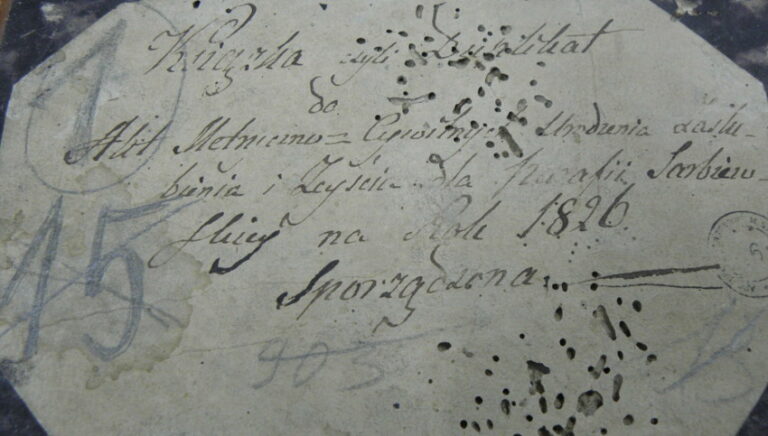 1
Książka czyli Duplikat
do
Akt Metriczno= Cywilnych Urodzenia Zaślu-
bienia i Zeyścia dla Parafii Sarbiew-
skiey na Rok 1826.
Sporządzona.
15
903